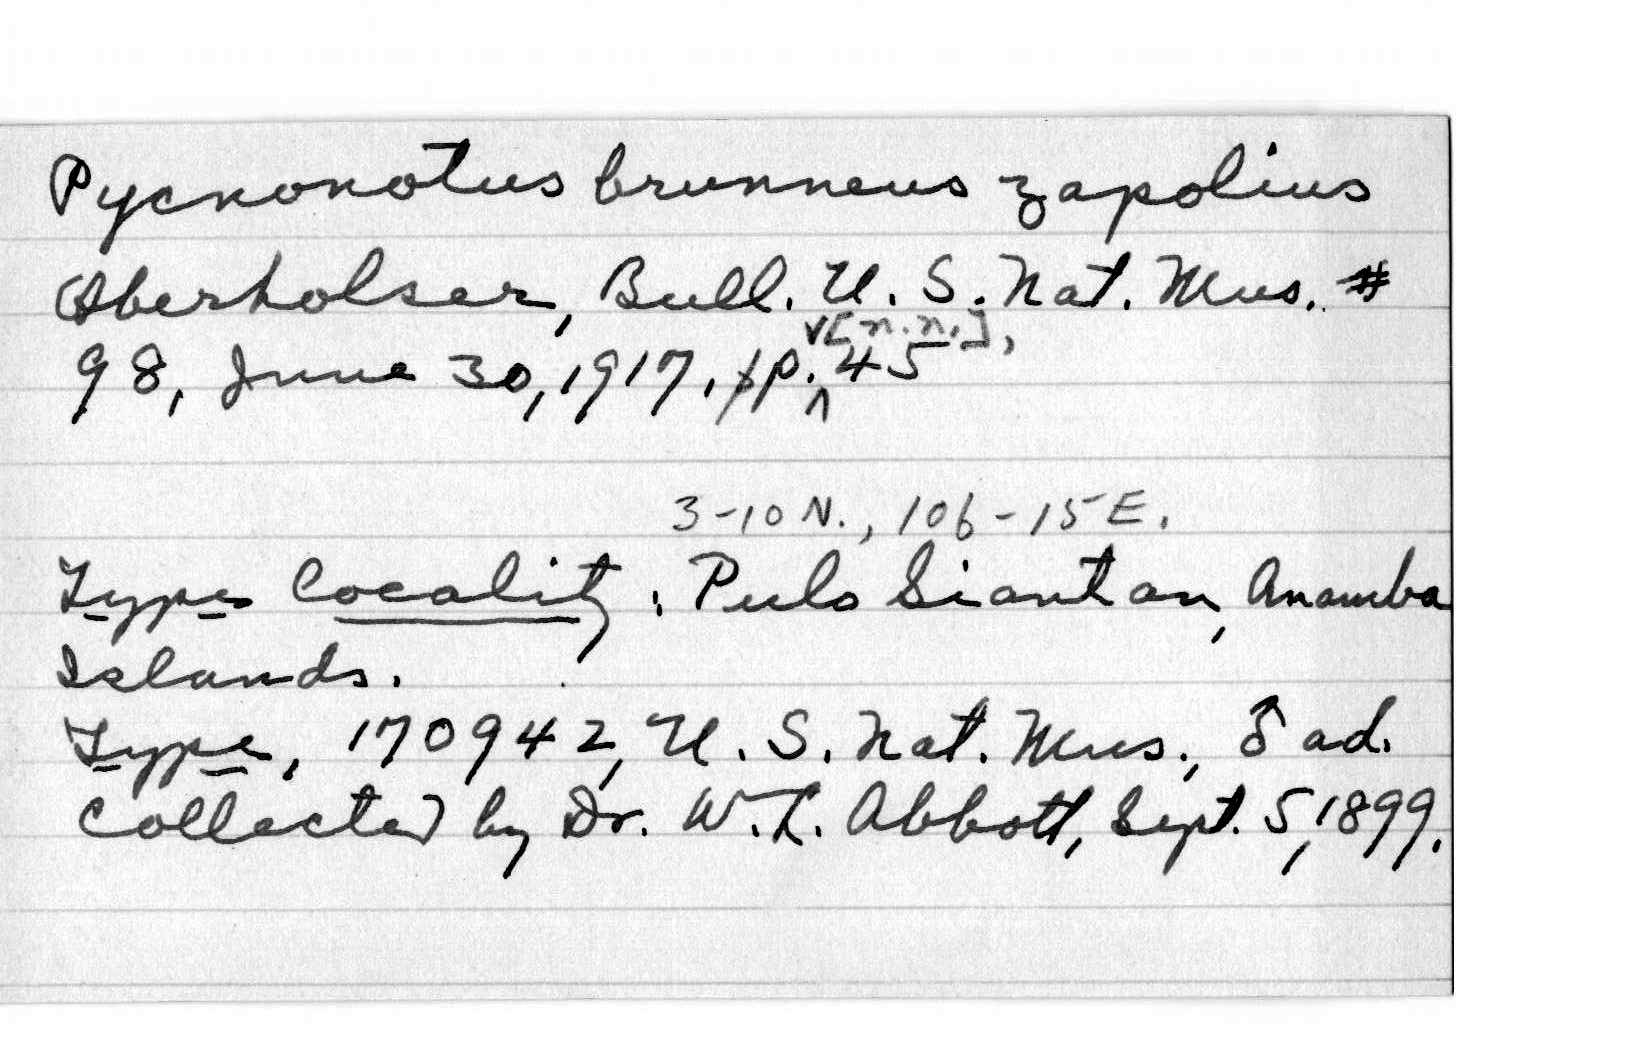 Pycnonotus brunneus zapolius
Oberholser, Bull. U. S. Nat. Mus. #
v[n.n.],
98, June 30, 1917, pp. 45
3-10 N., 106-15 E.
Type Locality: Pulo Siantan, Anamba
Islands.
Type, 170942, U. S. Nat. Mus., ♂ ad.
Collected by Dr. W. L. Abbott, Sept. 5, 1899.